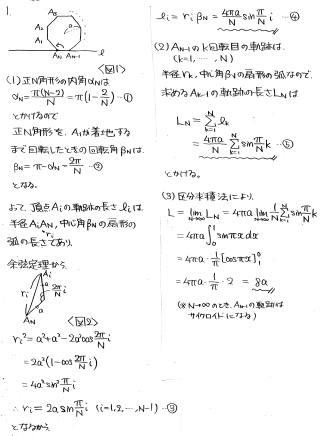 1.
A₃
A₂
A₁
a
A_N A_{N-1}
l
<図1>
(1) 正N角形の内角α_Nは
α_N = π(N-2)/N = π(1-2/N) …①
とかけるので
正N角形を、A₁が着地する
まで回転したときの回転角β_Nは
β_N = π-α_N = 2π/N …②
となる。
よって、頂点A_iの軌跡の長さl_iは、
半径A_iA_N, 中心角β_Nの扇形の
r_i
弧の長さであり、
余弦定理から
A_i
r_i
2π/N i
a
A_N
<図2>
r_i² = a²+a²-2a²cos 2π/N i
= 2a²(1-cos 2π/N i)
= 4a²sin² π/N i
∴ r_i = 2a sin π/N i (i=1,2,…,N-1) …③
となるから
l_i = r_i β_N = 4πa/N sin π/N i …④
(2) A_{N-1}のk回転目の軌跡は、
(k=1, …, N)
半径r_k, 中心角β_Nの扇形の弧なので、
求めるA_{N-1}の軌跡の長さL_Nは
L_N = Σ_{k=1}^{N} l_k
= 4πa/N Σ_{k=1}^{N} sin π/N k …⑤
とかける。
(3) 区分求積法により、
L = lim_{N→∞} L_N = 4πa lim_{N→∞} 1/N Σ_{k=1}^{N} sin π/N k
= 4πa ∫₀¹ sin πx dx
= 4πa · 1/π [cos πx]₁⁰
= 4πa · 1/π · 2 = 8a
(※ N→∞のとき、A_{N-1}の軌跡は
サイクロイドになる)